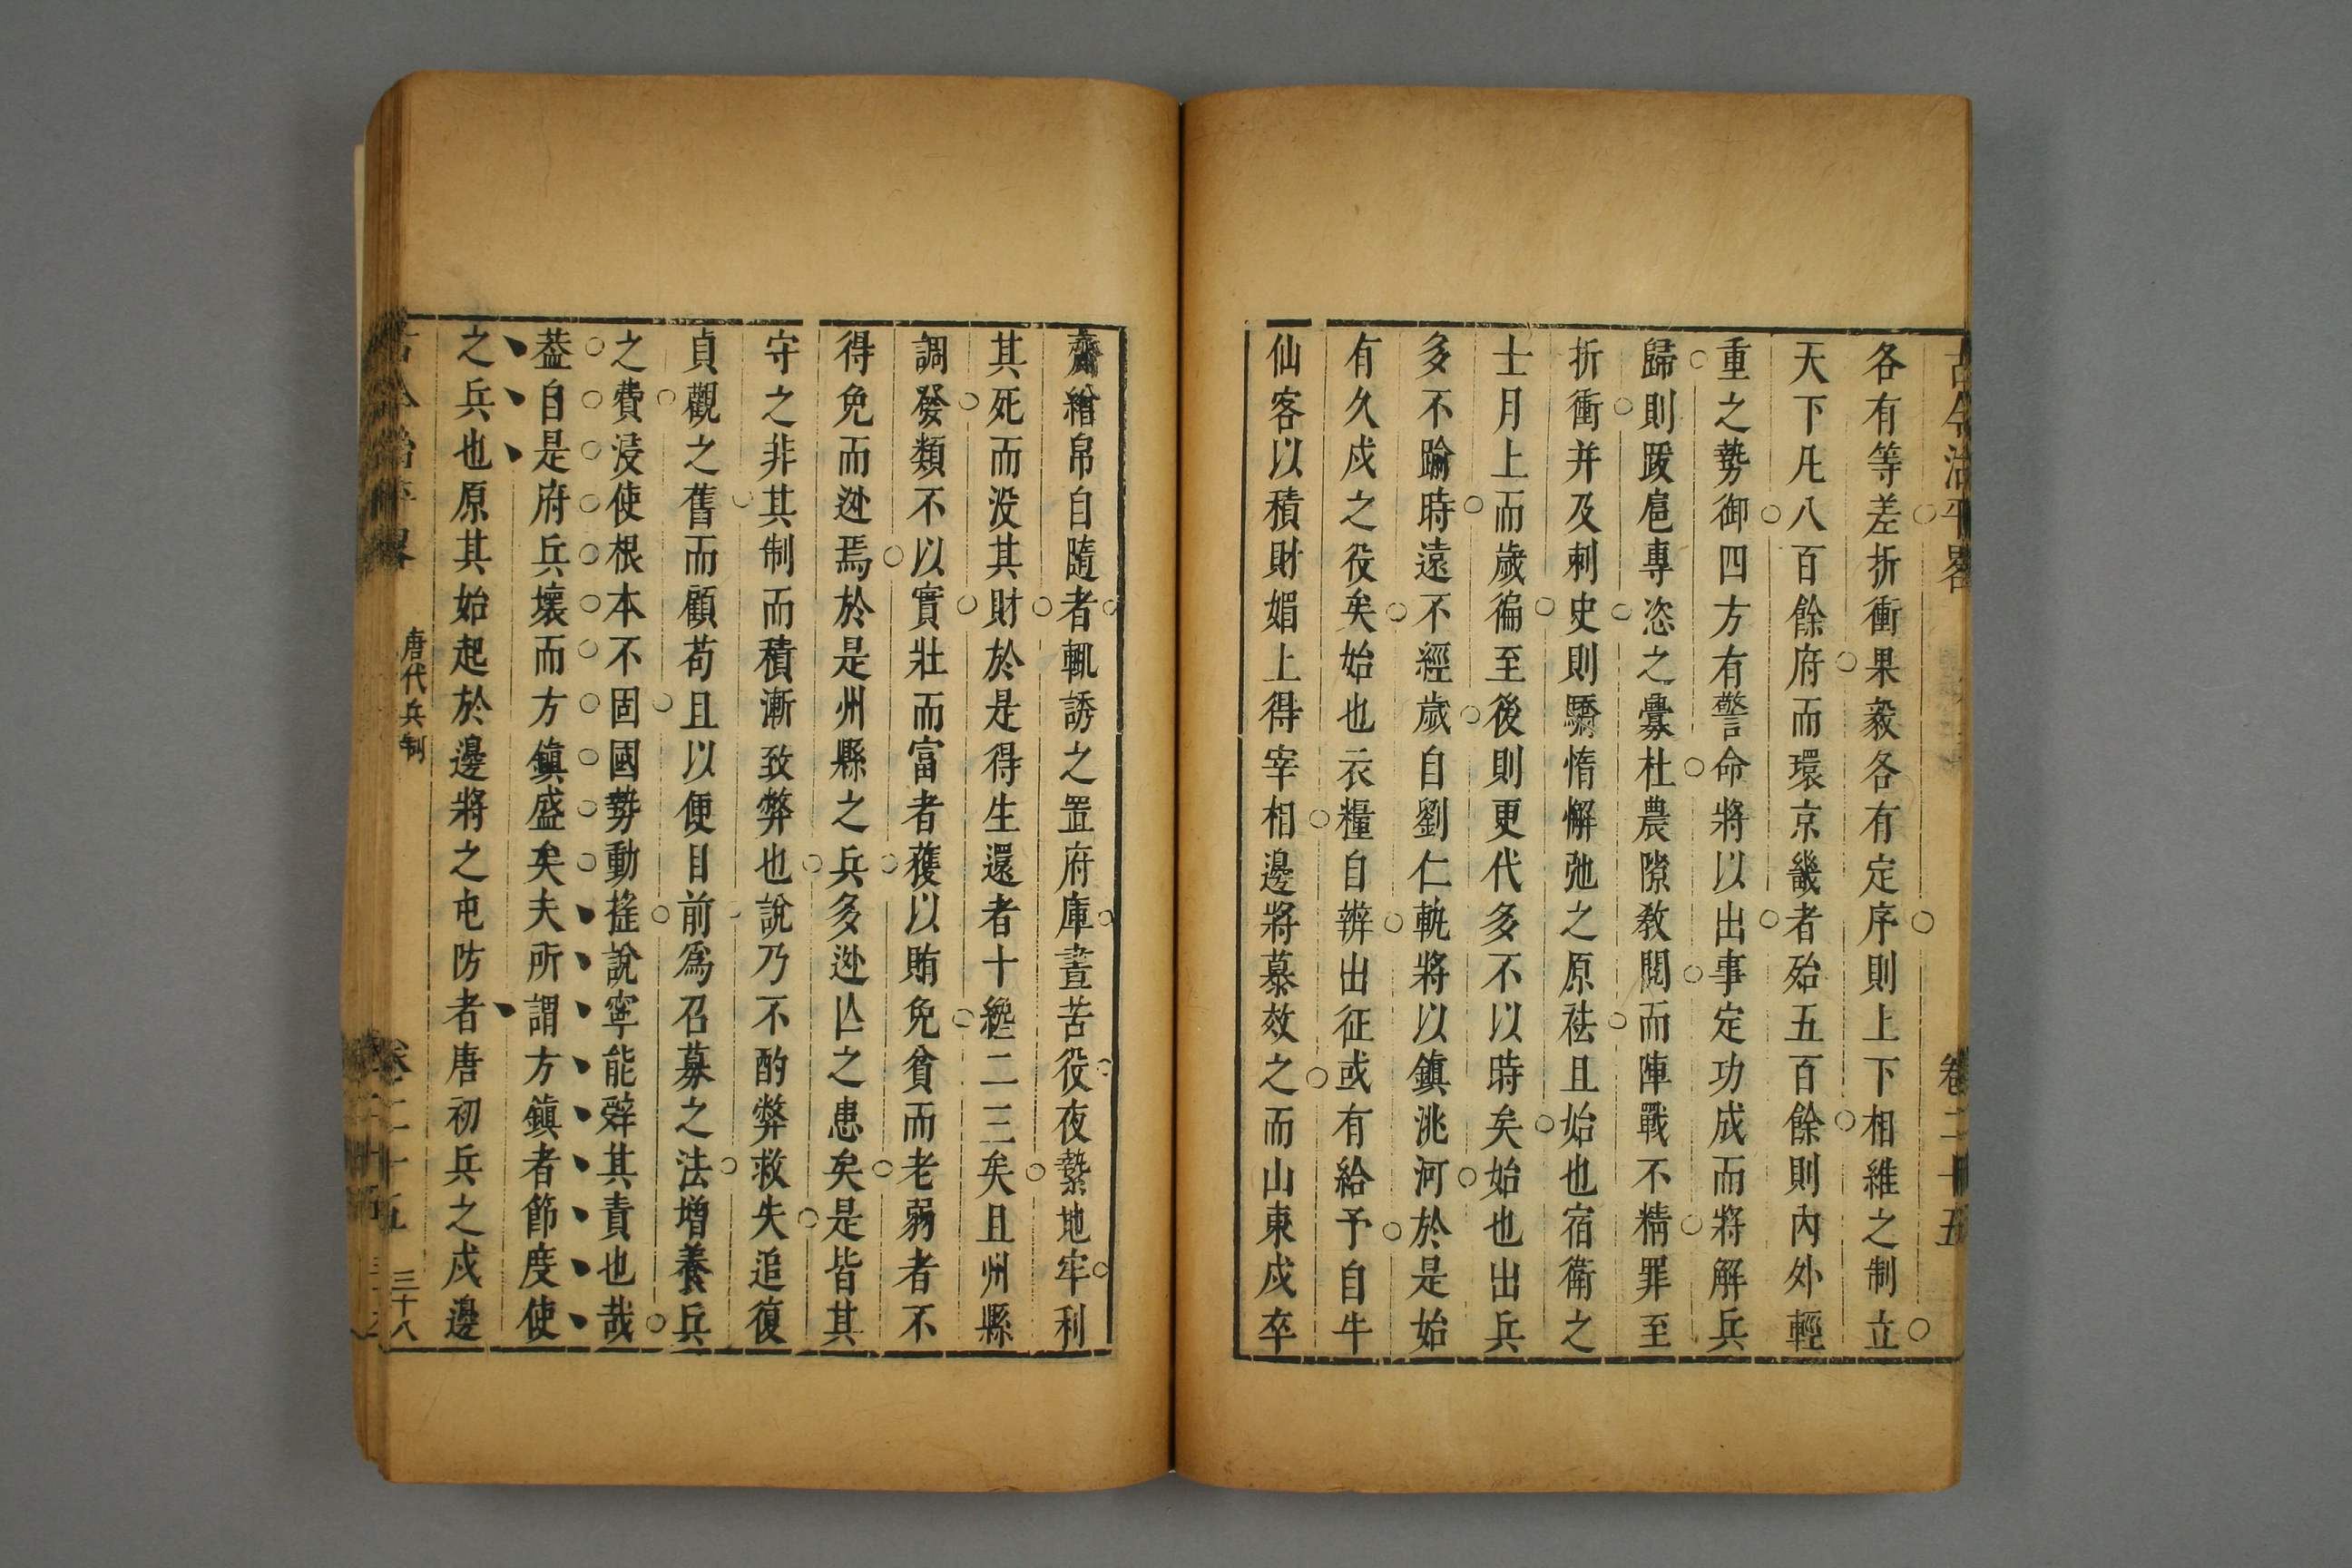 古今治平畧
卷二十五
各有等差折衝果毅各有定序則上下相維之制立
天下凡八百餘府而環京畿者殆五百餘則內外輕
重之勢御四方有警命將以出事定功成而將解兵
歸則跋扈專恣之釁杜農隙教閱而陣戰不精罪至
折衝并及刺史則驕惰懈弛之原祛且始也宿衛之
士月上而歲徧至後則更代多不以時矣始也出兵
多不踰時遠不經歲自劉仁軌將以鎮洮河於是始
有久戍之役矣始也衣糧自辨出征或有給予自牛
仙客以積財媚上得宰相邊將慕效之而山東戍卒
齎繒帛自隨者輒誘之置府庫晝苦役夜縶地牢利
其死而没其財於是得生還者十纔二三矣且州縣
調發類不以實壯而富者蒦以賄免貧而老弱者不
得免而逃焉於是州縣之兵多逃亾之患矣是皆其
守之非其制而積漸致弊也說乃不酌弊救失追復
貞觀之舊而顧苟且以便目前爲召募之法增養兵
之費浸使根本不固國勢動搖說寧能辤其責也哉
葢自是府兵壞而方鎮盛矣夫所謂方鎮者節度使
之兵也原其始起於邊將之屯防者唐初兵之戍邊
古今治平畧
唐代兵制
卷二十五
三十八